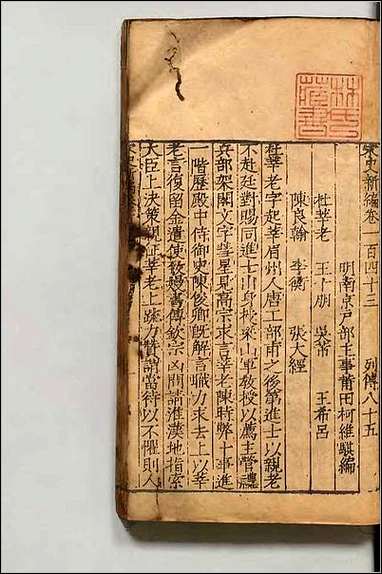 林氏藏書
宋史新編卷一百四十三 列傳八十五
明南京戶部主事莆田柯維騏編
杜莘老 王十朋 吳芾 王希呂
陳良翰 李衡 張大經
杜莘老字起莘眉州人唐工部甫之後第進士以親老
不赴廷對賜同進士出身授梁山軍教授以薦主管禮
兵部架閣文字彗星見高宗求言莘老陳時弊十事進
一階歷殿中侍御史陳俊卿旣解言職力求去上以莘
老言復留金遣使致嫚書傳欽宗凶問請淮漢地指索
大臣上決策親征莘老上疏力贊請當待以不懼則人